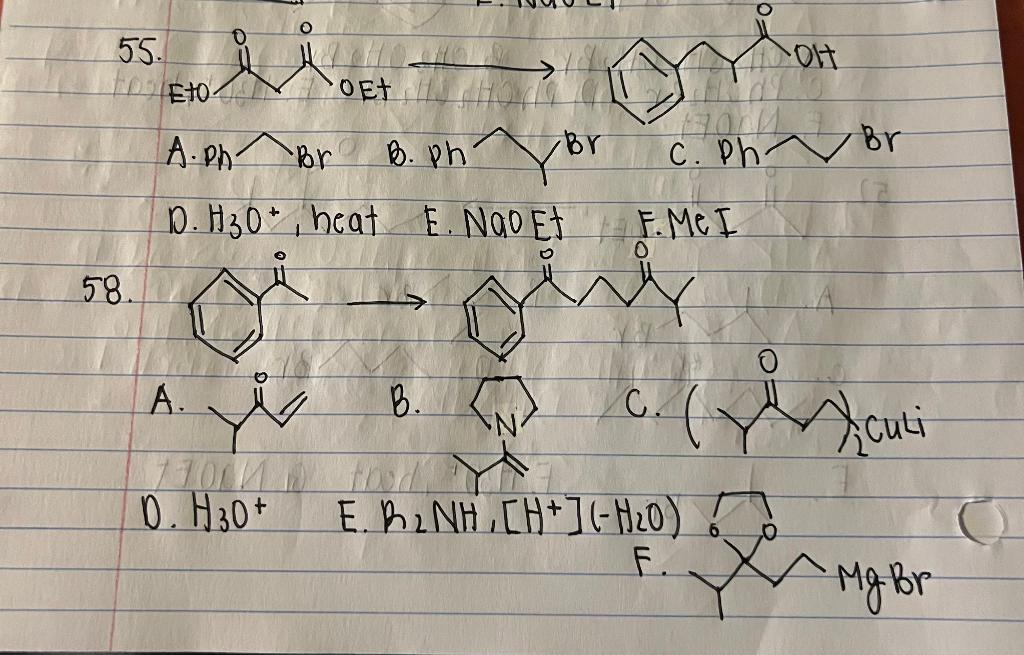 E. NaOEt
55.
O O O
EtO OEt OH
A. Ph Br B. Ph Br C. Ph Br
D. H3O+, heat E. NaOEt F. MeI
58.
O O O
A. O B. N C. ( O )2CuLi
D. H3O+ E. R2NH, [H+] (-H2O) O O
F. MgBr